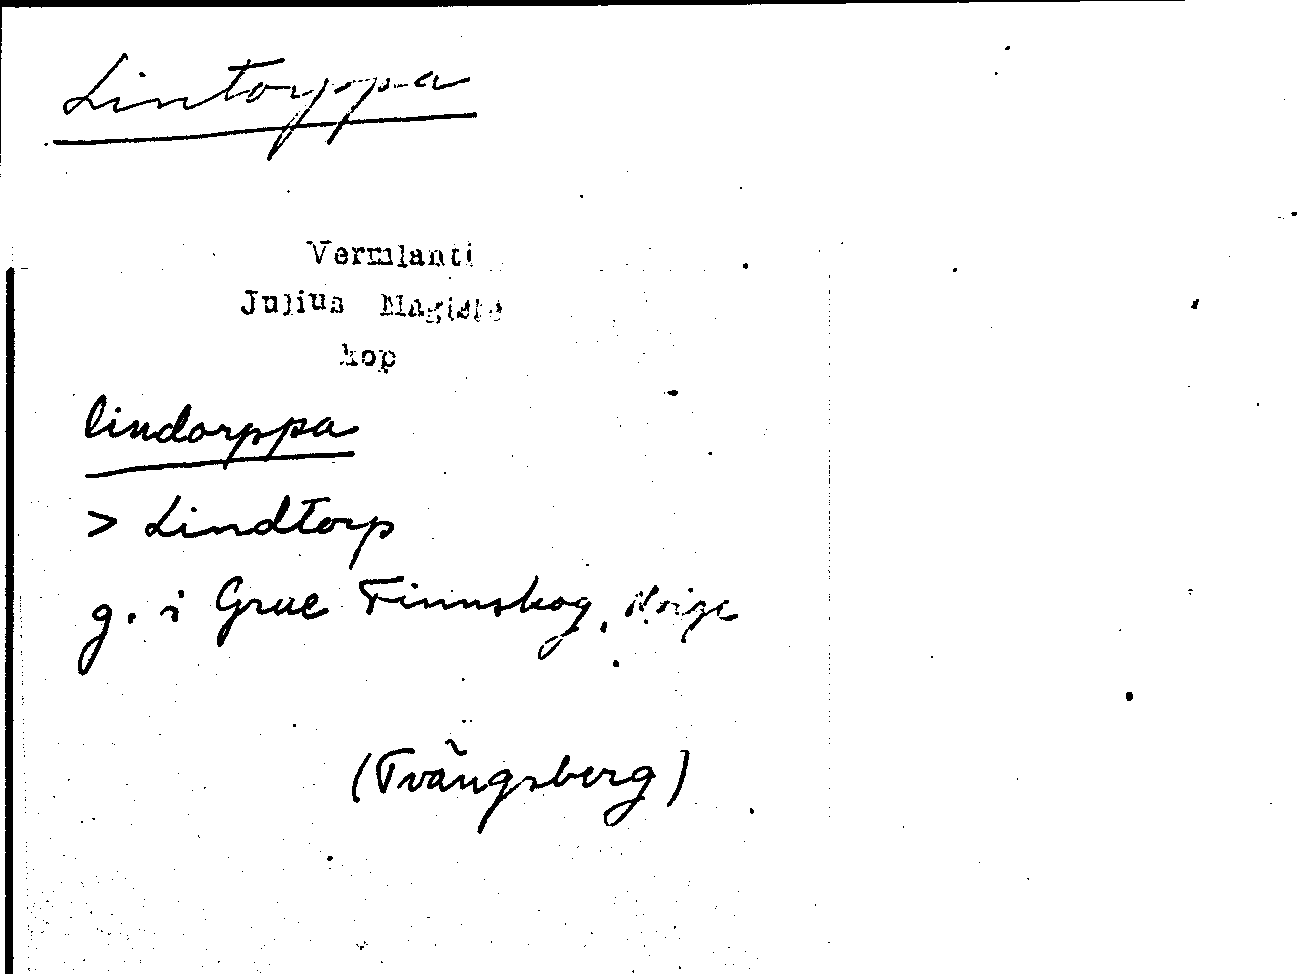 Lintorppa
Vermlanti
Julius Mägiste
kop
lindorppa
> Lindtorp
g. i Grue Finnskog, Norge
(Tvängsberg)